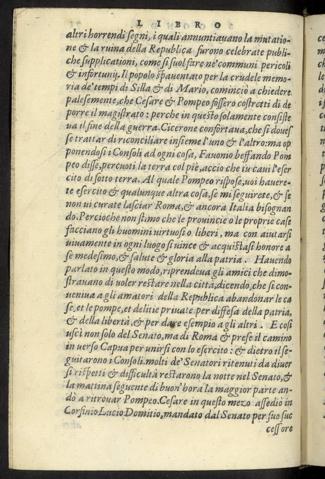 LIBRO
altri horrendi segni, i quali annuntiauano la mutatio-
ne & la ruina della Republica furono celebrate publi-
che supplicationi, come si suol fare ne' communi pericoli
& infortunij. Il popolo spauentato per la crudele memo-
ria de' tempi di Silla & di Mario, cominciò a chiedere
palesemente, che Cesare & Pompeo fossero costretti di de
porre il magistrato: perche in questo solamente consiste
ua il fine della guerra. Cicerone confortaua, che si douesse
trattar di riconciliare insieme l'uno & l'altro: ma op
ponendosi i Consoli ad ogni cosa, Fauonio beffando Pom
peo disse, percuoti la terra col piè, accio che tu caui l'eser
cito di sotto terra. Al quale Pompeo rispose, uoi hauere-
te esercito & qualunque altra cosa, se mi seguirete, & se
non ui curate lasciar Roma, & ancora Italia bisognan
do. Percioche non stimo che le prouincie o le proprie case
facciano gli huomini virtuosi o liberi, ma con aiutarsi
uiuamente in ogni luogo si uince & acquistasi honore a
se medesimo, & salute & gloria alla patria. Hauendo
parlato in questo modo, riprendeua gli amici che dimo-
strauano di uoler restare nella città, dicendo, che si con-
ueniua a gli amatori della Republica abandonar le ca
se, et le pompe, et delitie priuate per diffesa della patria,
& della libertà, & per dare esempio a gli altri. E cosi
uscì non solo del Senato, ma di Roma & prese il camino
in uerso Capua per unirsi con lo esercito: & dietro il se-
guitarono i Consoli. molti de' Senatori ritenuti da diuer
si rispetti & difficultà restarono la notte nel Senato, &
la mattina seguente di buon' hora la maggior parte an-
dò a ritrouar Pompeo. Cesare in questo mezo assediò in
Corfinio Lucio Domitio, mandato dal Senato per suo suc
cessore